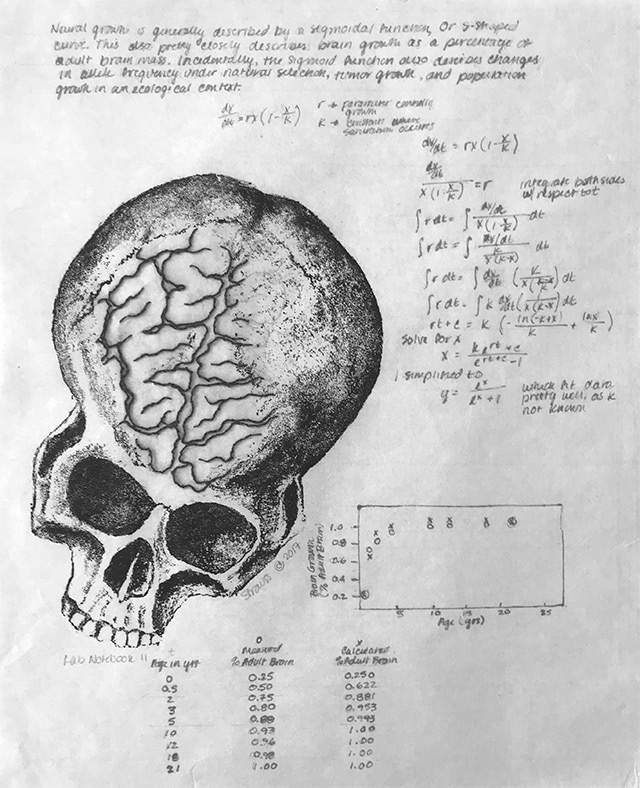 Neural growth is generally described by a sigmoidal function, or s-shaped
curve. This also pretty closely describes brain growth as a percentage of
adult brain mass. Incidentally, the sigmoid function also describes changes
in allele frequency under natural selection, tumor growth, and population
growth in an ecological context.
dx/dt = rx(1-x/k) r → parameter controlling growth
k → constant where saturation occurs
dx/dt = rx(1-x/k)
dx/dt / x(1-x/k) = r integrate both sides w/ respect to t
∫r dt = ∫ dx/dt / x(1-x/k) dt
∫r dt = ∫ dx/dt / x(k-x) dt
∫r dt = ∫ dx/dt dt
∫r dt = ∫ k dx/dt dt
rt+c = k (-ln(-k+x)/k + lnx/k)
Solve for x
x = k e^rt+c / e^rt+c -1
simplified to
y = e^x / e^x+1 which fit data
pretty well, as k
not known
Strauss © 2017
Brain Growth
(% Adult Brain)
1.0
0.8
0.6
0.4
0.2
5 10 15 20 25
Age (yrs)
Lab Notebook 11
t o x
Age in yrs Measured % Adult Brain Calculated % Adult Brain
0 0.25 0.250
0.5 0.50 0.622
2 0.75 0.881
3 0.80 0.953
5 0.88 0.993
10 0.93 1.00
12 0.96 1.00
18 0.98 1.00
21 1.00 1.00